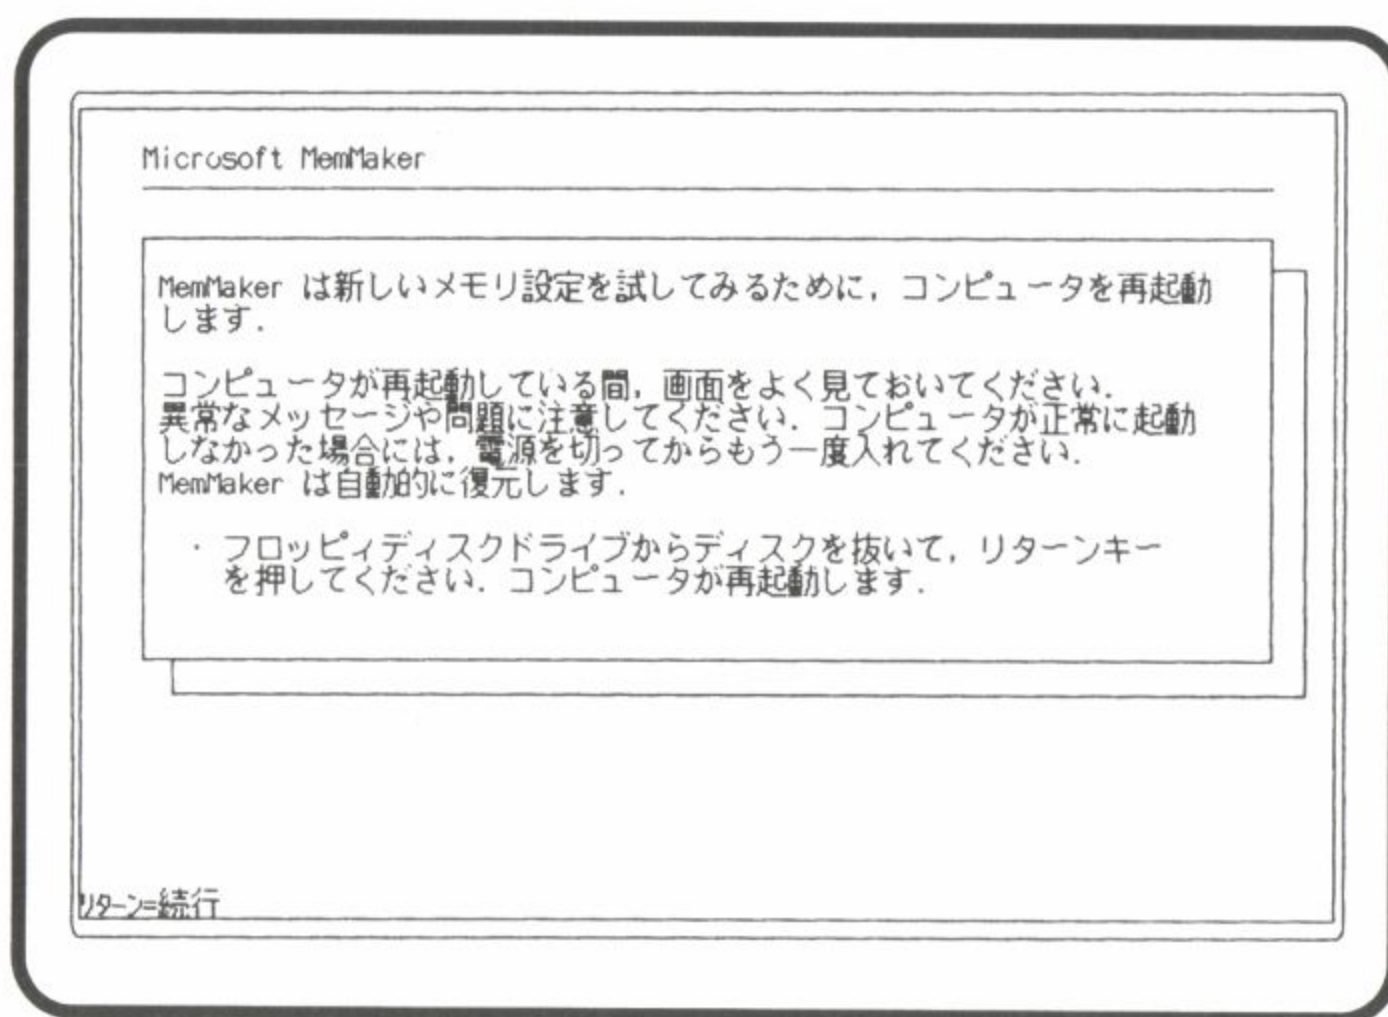 Microsoft MemMaker
MemMaker は新しいメモリ設定を試してみるために，コンピュータを再起動
します．
コンピュータが再起動している間，画面をよく見ておいてください．
異常なメッセージや問題に注意してください．コンピュータが正常に起動
しなかった場合には，電源を切ってからもう一度入れてください．
MemMaker は自動的に復元します．
・ フロッピィディスクドライブからディスクを抜いて，リターンキー
を押してください．コンピュータが再起動します．
ﾘﾀｰﾝ=続行